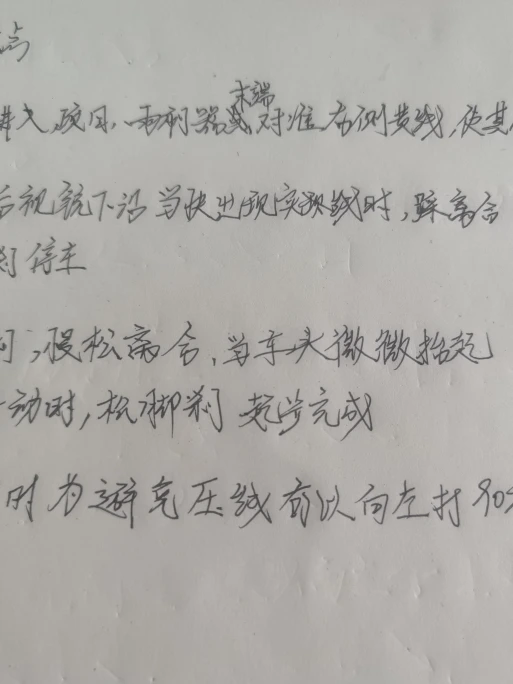 点
进入项目，雨刷器末端对准右侧黄线，使其
后视镜下沿当快出现实线时，踩离合
刹停车
刹，慢松离合，当车头微微抬起
动时，松脚刹 起步完成
时为避免压线可以向左打90